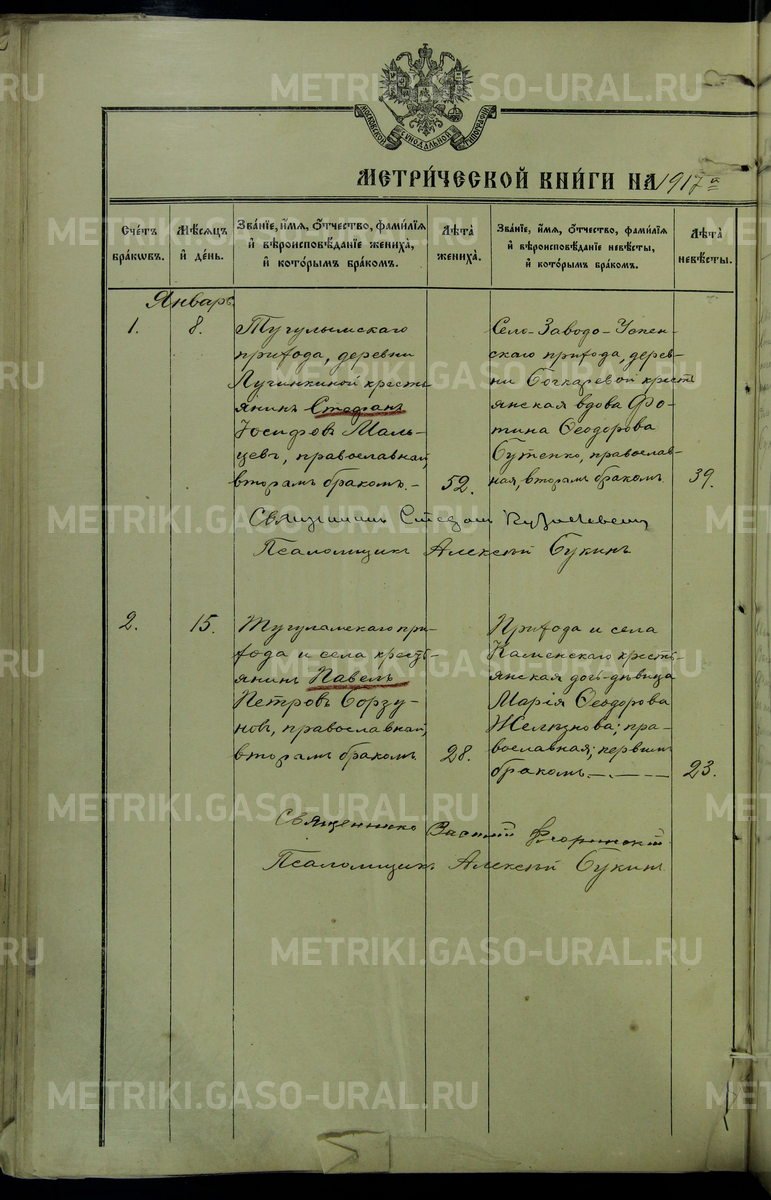 МОСКОВСКОЙ СѴНОДАЛЬНОЙ ТИПОГРАФІИ
МЕТРИ́ЧЕСКОЙ КНИ́ГИ НА 1917 а
Сче́тъ бра́кѡвъ.
Мѣ́сяцъ и҆ де́нь.
Зва́нїе, и҆́мя, ѻ҆́тчество, фами́лїя и҆ вѣроисповѣ́данїе жениха̀, и҆ кото́рымъ бра́комъ.
Лѣ́та жениха̀.
Зва́нїе, и҆́мя, ѻ҆́тчество, фами́лїя и҆ вѣроисповѣ́данїе невѣ́сты, и҆ кото́рымъ бра́комъ.
Лѣ́та невѣ́сты.
Январь
1.
8.
Тугулымскаго
прихода, деревни
Лучинкиной кресть-
янинъ Стефанъ
Іосифовъ Маль-
цевъ, православный,
вторымъ бракомъ.-
52.
Село-Заводо-Успен-
скаго прихода, дерев-
ни Бочкаревой крестъ
янская вдова Фо-
тина Ѳеодорова
Бутенко, православ-
ная, вторымъ бракомъ
39.
Священникъ Стефан
Псаломщикъ Алексѣй Букинъ
2.
15.
Тугулымскаго при-
хода и села кресть-
янинъ Павелъ
Петровъ Борзу-
новъ, православный,
вторымъ бракомъ
28.
Прихода и села
Каменскаго кресть-
янская дочь-дѣвица
Марія Ѳеодорова
Желѣзнова; пра-
вославная; первымъ
бракомъ
23.
Священникъ Василій Флоринскій
Псаломщикъ Алексѣй Букинъ
METRIKI.GASO-URAL.RU